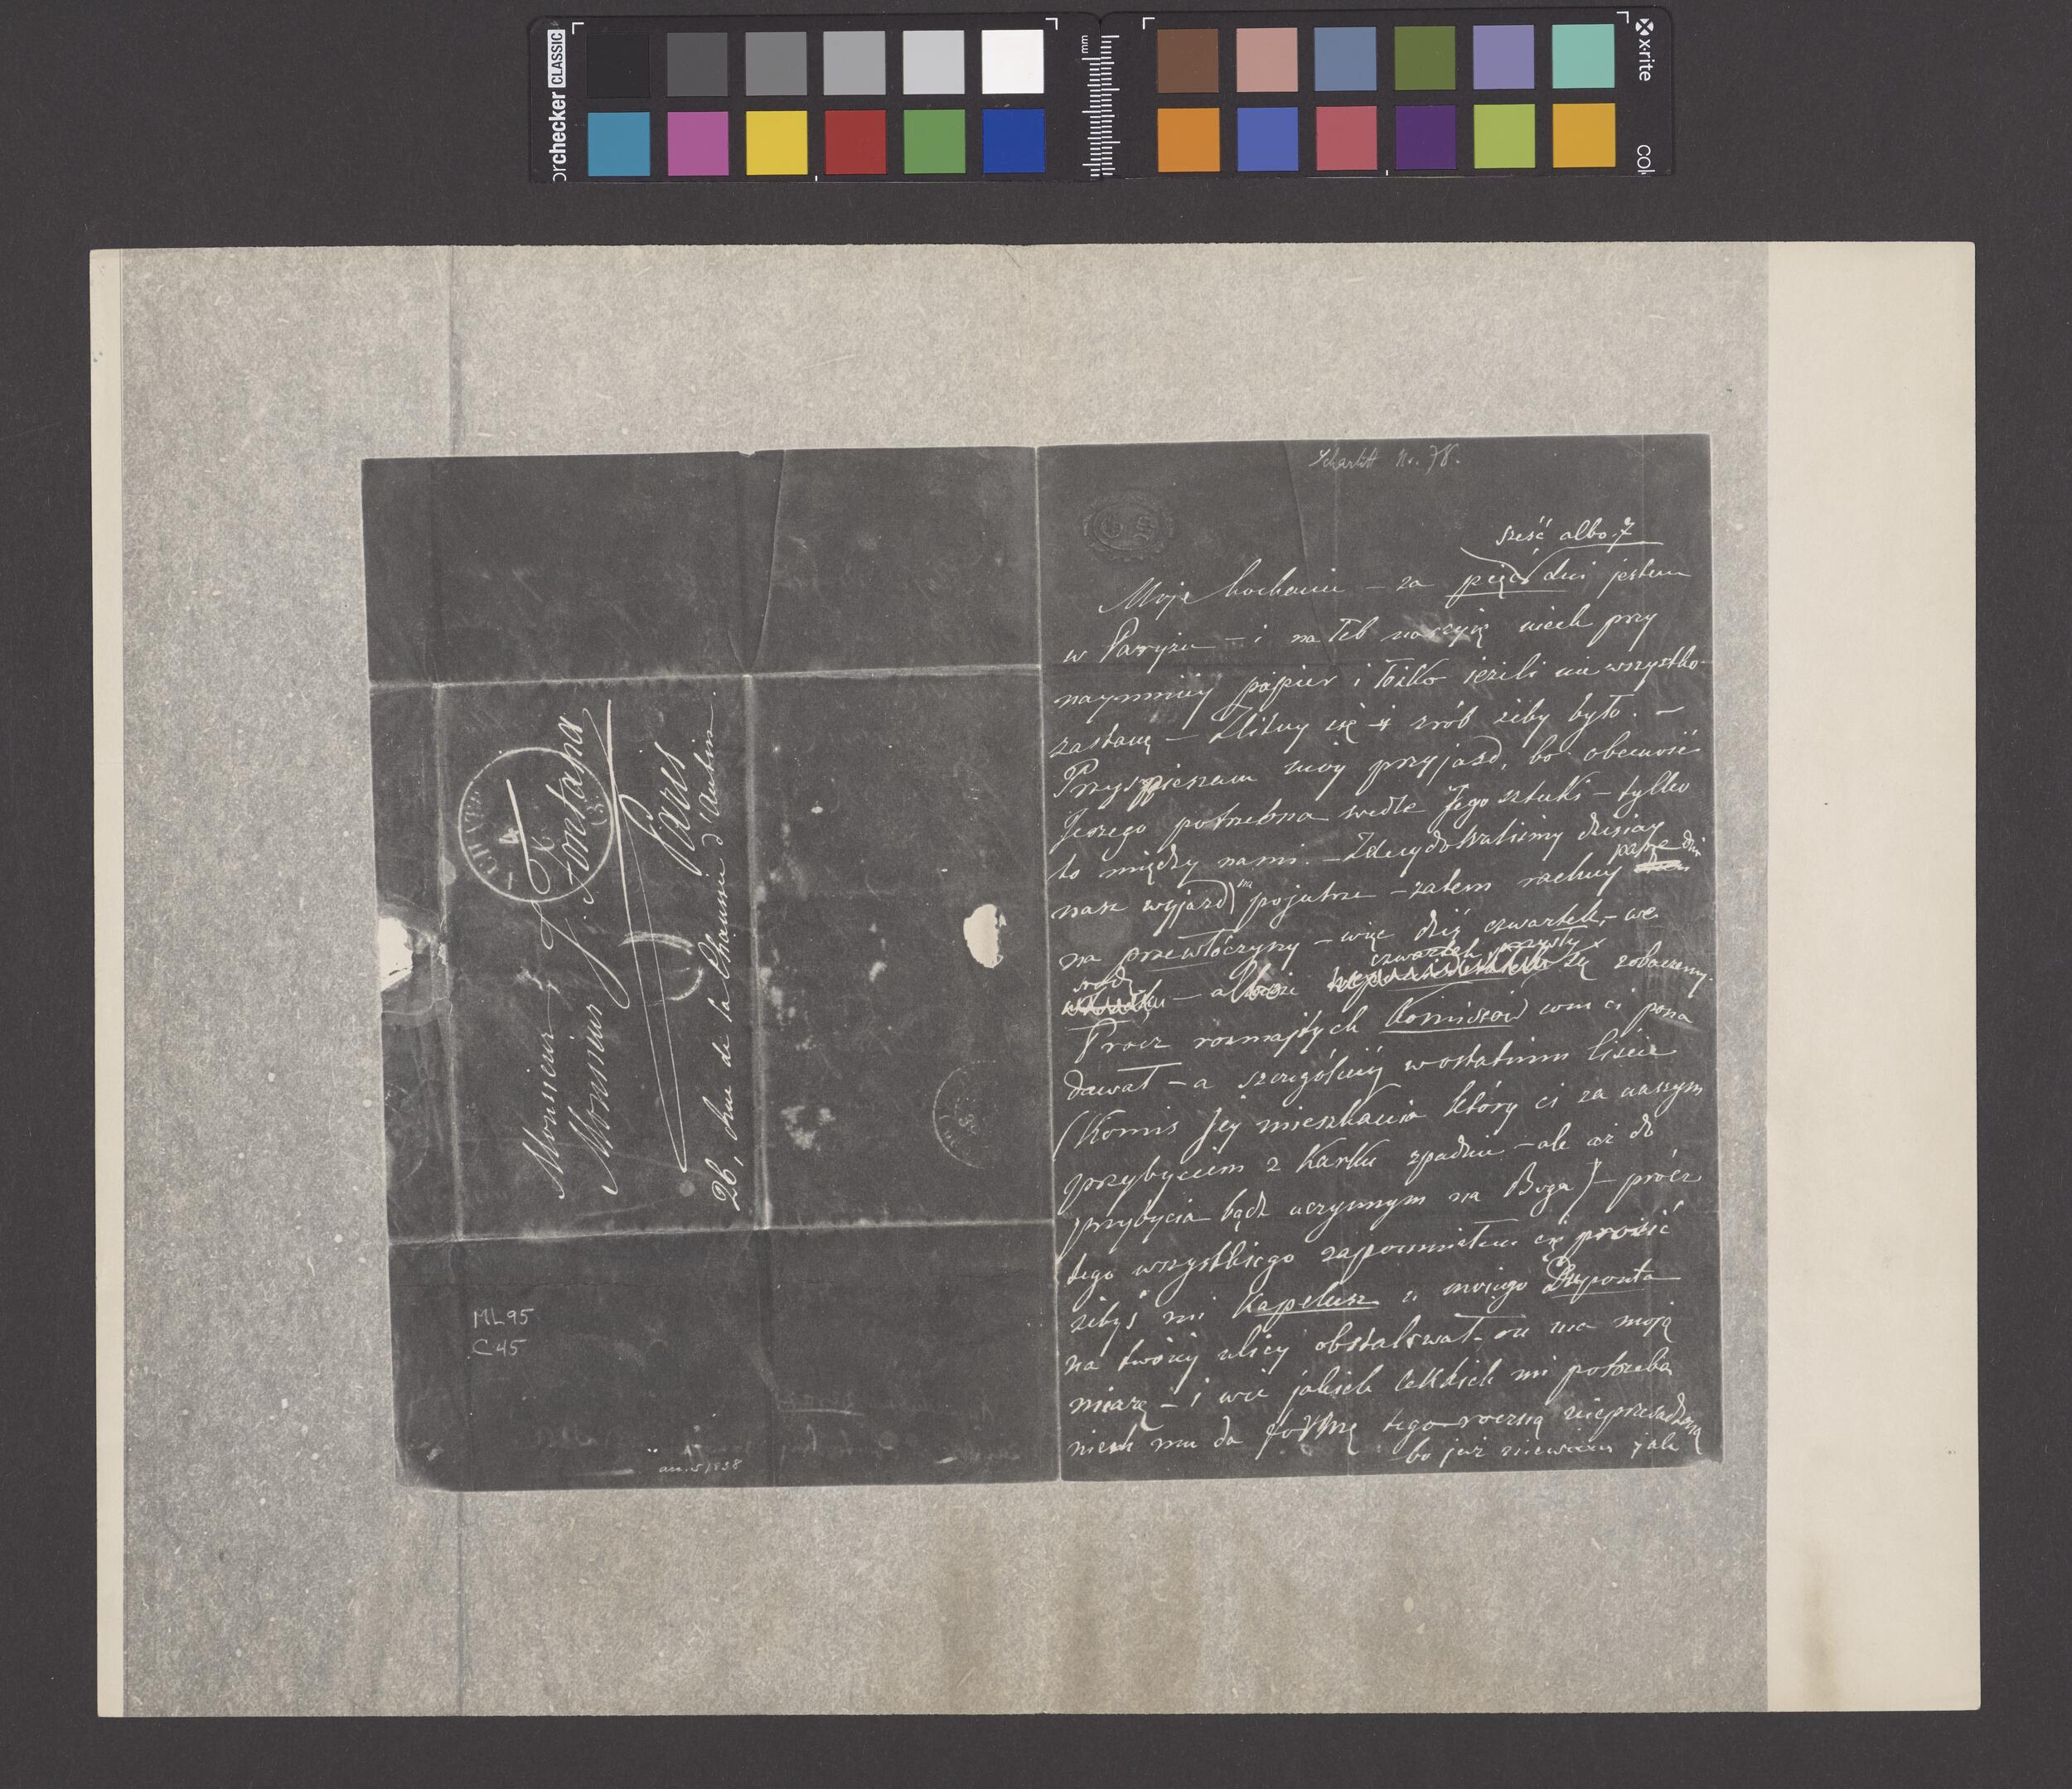 orchecker CLASSIC
mm
x·rite
col
Monsieur
Monsieur J. Fontana
Paris
26, rue de la Chaussée d'Antin.
LA CHATRE
4
(35)
ML95
C45
Scharlitt Nr. 78.
GS
sześć albo 7
Moje kochanie – za pięć dni jestem
w Paryżu – i na łeb na szyję niech przy
naymniey papier i łóżko ieżeli nie wszystko
zastanę – Zlituy się i zrób żeby było. –
Przyspieszam mój przyjazd, bo obecność
Jerzego potrzebna wedle Jego sztuki – tylko
to między nami. – Zdecydowaliśmy dzisiay
nasz wyjazd na pojutrze – zatem rachuy parę dni
na przewłoczyny – więc dziś czwartek, – we
środę – albo czwartek przyszły się zobaczemy.
Procz rozmajtych Komissów com ci poza
dawał – a szczególniey w ostatnim liście
(Komis Jey mieszkania który ci za naszym
przybyciem z Karku zpadnie – ale aż do
przybycia bądź uczynnym na Boga) – prócz
tego wszystkiego zapomniałem cię prosić
żebyś mi Kapelusz u mojego Duponta
na twóiey ulicy obstalował – on ma moją
miarę – i wie jakich lekkich mi potrzeba
niech mu da formę tego-roczną nieprzesadzoną
bo już niewiem jak